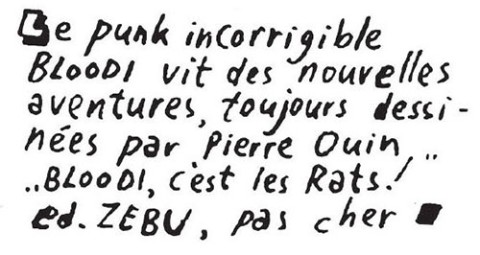 Le punk incorrigible
BLOODI vit des nouvelles
aventures, toujours dessi-
nées par Pierre Ouin, ..
..BLOODI, c'est les Rats!
ed. ZEBU, pas cher